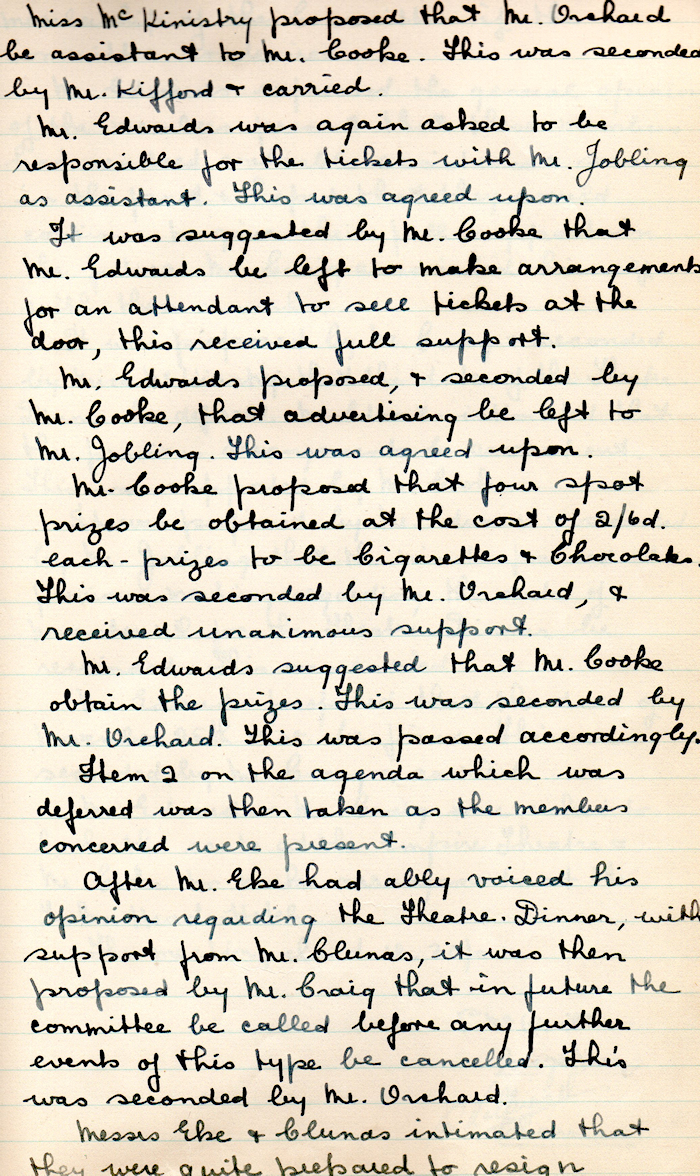 Miss Mc Kinistry proposed that Mr. Orchard
be assistant to Mr. Cooke. This was seconded
by Mr. Kifford & carried.
Mr. Edwards was again asked to be
responsible for the tickets with Mr. Jobling
as assistant. This was agreed upon.
It was suggested by Mr. Cooke that
Mr. Edwards be left to make arrangements
for an attendant to sell tickets at the
door, this received full support.
Mr. Edwards proposed, & seconded by
Mr. Cooke, that advertising be left to
Mr. Jobling. This was agreed upon.
Mr. Cooke proposed that four spot
prizes be obtained at the cost of 2/6d.
each - prizes to be Cigarettes & Chocolates.
This was seconded by Mr. Orchard, &
received unanimous support.
Mr. Edwards suggested that Mr. Cooke
obtain the prizes. This was seconded by
Mr. Orchard. This was passed accordingly.
Item 2 on the agenda which was
deferred was then taken as the members
concerned were present.
After Mr. Eke had ably voiced his
opinion regarding the Theatre-Dinner, with
support from Mr. Clunas, it was then
proposed by Mr. Craig that in future the
committee be called before any further
events of this type be cancelled. This
was seconded by Mr. Orchard.
Messrs Eke & Clunas intimated that
they were quite prepared to resign